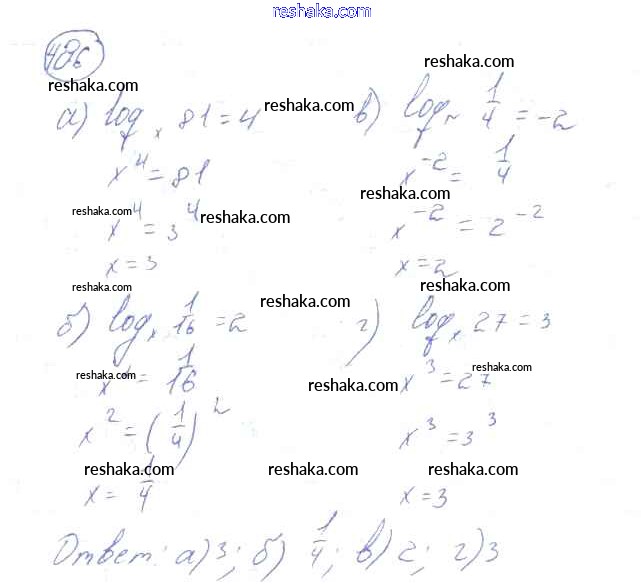 reshaka.com
486
reshaka.com
reshaka.com
а) logₓ 81 = 4
reshaka.com
x⁴ = 81
reshaka.com
x⁴ = 3⁴
reshaka.com
x = 3
в) logₓ 1/4 = -2
x⁻² = 1/4
reshaka.com
x⁻² = 2⁻²
x = 2
reshaka.com
reshaka.com
reshaka.com
б) logₓ 1/16 = 2
reshaka.com
x² = 1/16
x² = (1/4)²
reshaka.com
x = 1/4
г) logₓ 27 = 3
reshaka.com
reshaka.com
x³ = 27
x³ = 3³
reshaka.com
reshaka.com
x = 3
Ответ: а) 3; б) 1/4; в) 2; г) 3